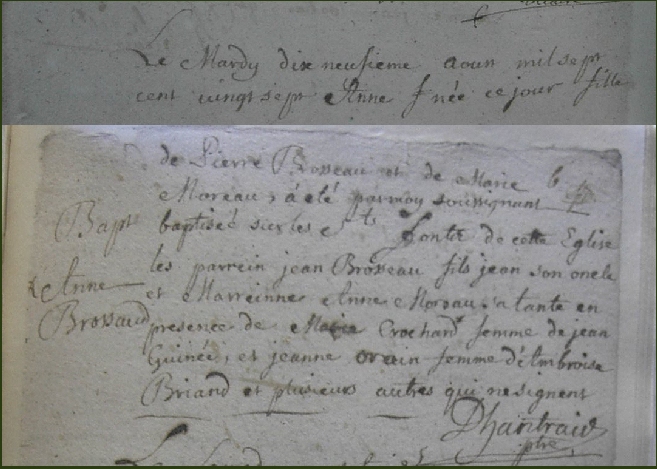 Le Mardy dix neufieme aoust mil sept
cent vingt sept Anne née ce jour fille
de Pierre Brosseau et de Marie
Moreau, a été par moy soussignant
baptisée sur les fonts de cette Eglise
les parrein jean Brosseau fils jean son oncle
et Marreinne Anne Moreau sa tante en
presence de Marie Crochard femme de jean
Guinée, et jeanne femme d'Ambroise
Briand et plusieurs autres qui ne signent
Bapt
d'Anne
Brossaud
ptre